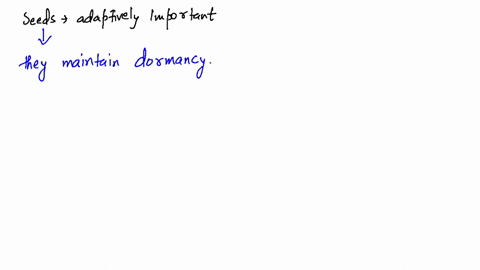 Seeds → adaptively important
↓
they maintain dormancy.